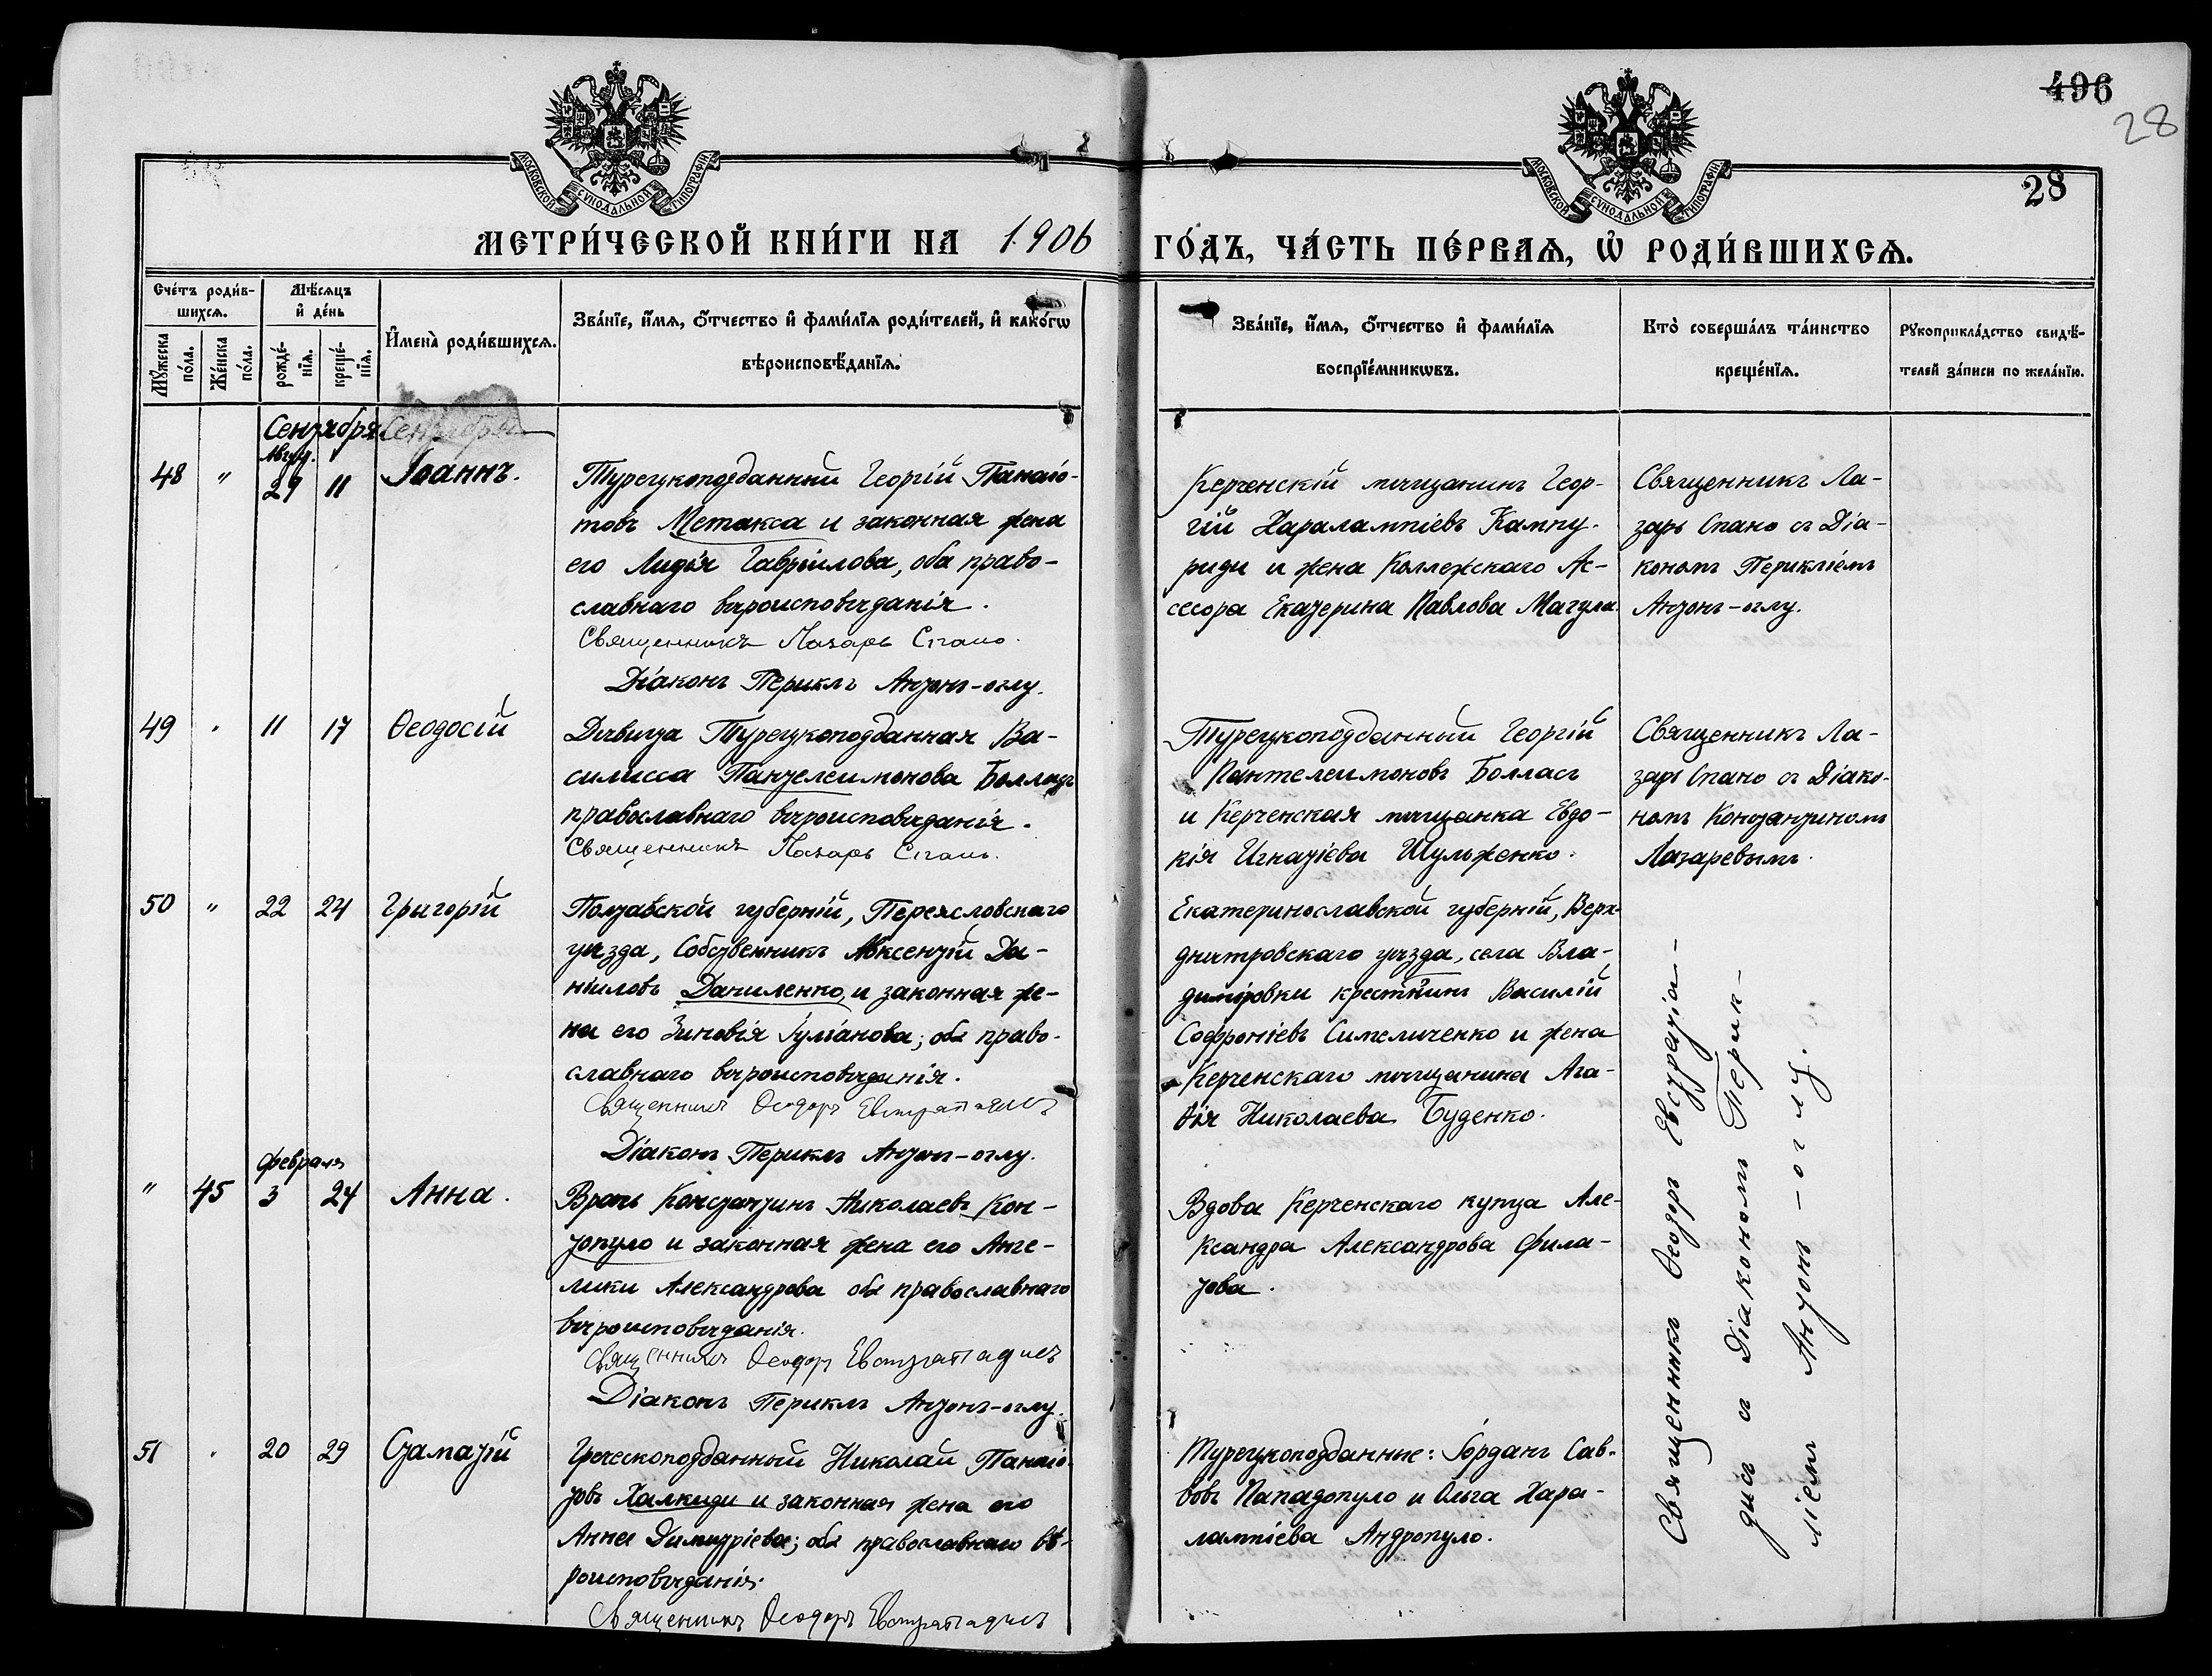 496
28
МОСКОВСКОЙ СѴНОДАЛЬНОЙ ТИПОГРАФІИ
МОСКОВСКОЙ СѴНОДАЛЬНОЙ ТИПОГРАФІИ
28
МЕТРИ́ЧЕСКОЙ КНИ́ГИ НА 1906 ГО́ДЪ, ЧА́СТЬ ПЕ́РВАѦ, Ѡ҆ РОДИ́ВШИХСѦ.
Сче́тъ роди́в-
шихсѧ.
Мꙋ́жеска по́ла.
Же́нска по́ла.
Мѣ́сѧцъ
и҆ де́нь
рожде́-
нїѧ.
креще́-
нїѧ.
И҆мена̀ роди́вшихсѧ.
Зва́нїе, и҆́мѧ, ѻ҆́тчество и҆ фами́лїѧ роди́телей, и҆ како́гѡ
вѣроисповѣ́данїѧ.
Зва́нїе, и҆́мѧ, ѻ҆́тчество и҆ фами́лїѧ
воспрїе́мникѡвъ.
Кто̀ соверша́лъ та́инство
креще́нїѧ.
Рꙋкоприкла́дство свидѣ́-
телей за́писи по жела́нїю.
Сентября Сентября
48 " Авгус. 29 11 Іоаннъ.
Турецкоподданный Георгій Панаіо-
товъ Метакса и законная жена
его Лидія Гавріилова, оба право-
славнаго вѣроисповѣданія.
Священникъ Лазарь Спано.
Діаконъ Периклъ Антонъ-оглу.
Керченскій мѣщанинъ Геор-
гій Харалампіевъ Кампу-
риди и жена Коллежскаго Ас-
сесора Екатерина Павлова Магула.
Священникъ Ла-
зарь Спано съ Діа-
кономъ Перикліемъ
Антонъ-оглу.
49 " 11 17 Ѳеодосій
Дѣвица Турецкоподданная Ва-
силисса Пантелеимонова Болласъ
православнаго вѣроисповѣданія.
Священникъ Лазарь Спано.
Турецкоподданный Георгій
Пантелеимоновъ Болласъ
и Керченская мѣщанка Евдо-
кія Игнатіева Шульженко.
Священникъ Ла-
зарь Спано съ Діако-
номъ Константиномъ
Лазаревымъ.
50 " 22 24 Григорій
Полтавской губерній, Переясловскаго
уѣзда, Собственникъ Авксентій Да-
ніиловъ Даниленко, и законная же-
на его Зиновія Іуліанова; оба право-
славнаго вѣроисповѣданія.
Священникъ Ѳеодоръ Евстратіадисъ
Діаконъ Периклъ Антонъ-оглу.
Екатеринославской губерній, Верх-
днѣпровскаго уѣзда, села Вла-
диміровки крестнинъ Василій
Софроніевъ Симеличенко и жена
Керченскаго мѣщанина Ага-
ѳія Николаева Буденко.
Священникъ Ѳеодоръ Евстратіа-
дисъ съ Діакономъ Перик-
ліемъ Антонъ-оглу.
" 45 Февраля 3 24 Анна.
Врачъ Константинъ Николаевъ Кон-
топуло и законная жена его Анге-
лики Александрова оба православнаго
вѣроисповѣданія.
Священникъ Ѳеодоръ Евстратіадисъ
Діаконъ Периклъ Антонъ-оглу.
Вдова Керченскаго купца Але-
ксандра Александрова Фила-
това.
51 " 20 29 Стаматій
Греческоподданный Николай Панаіо-
товъ Халкиди и законная жена его
Анна Димитріева; оба православнаго вѣ-
роисповѣданія.
Священникъ Ѳеодоръ Евстратіадисъ
Турецкоподданные: Іорданъ Сав-
вовъ Пападопуло и Ольга Хара-
лампіева Андропуло.